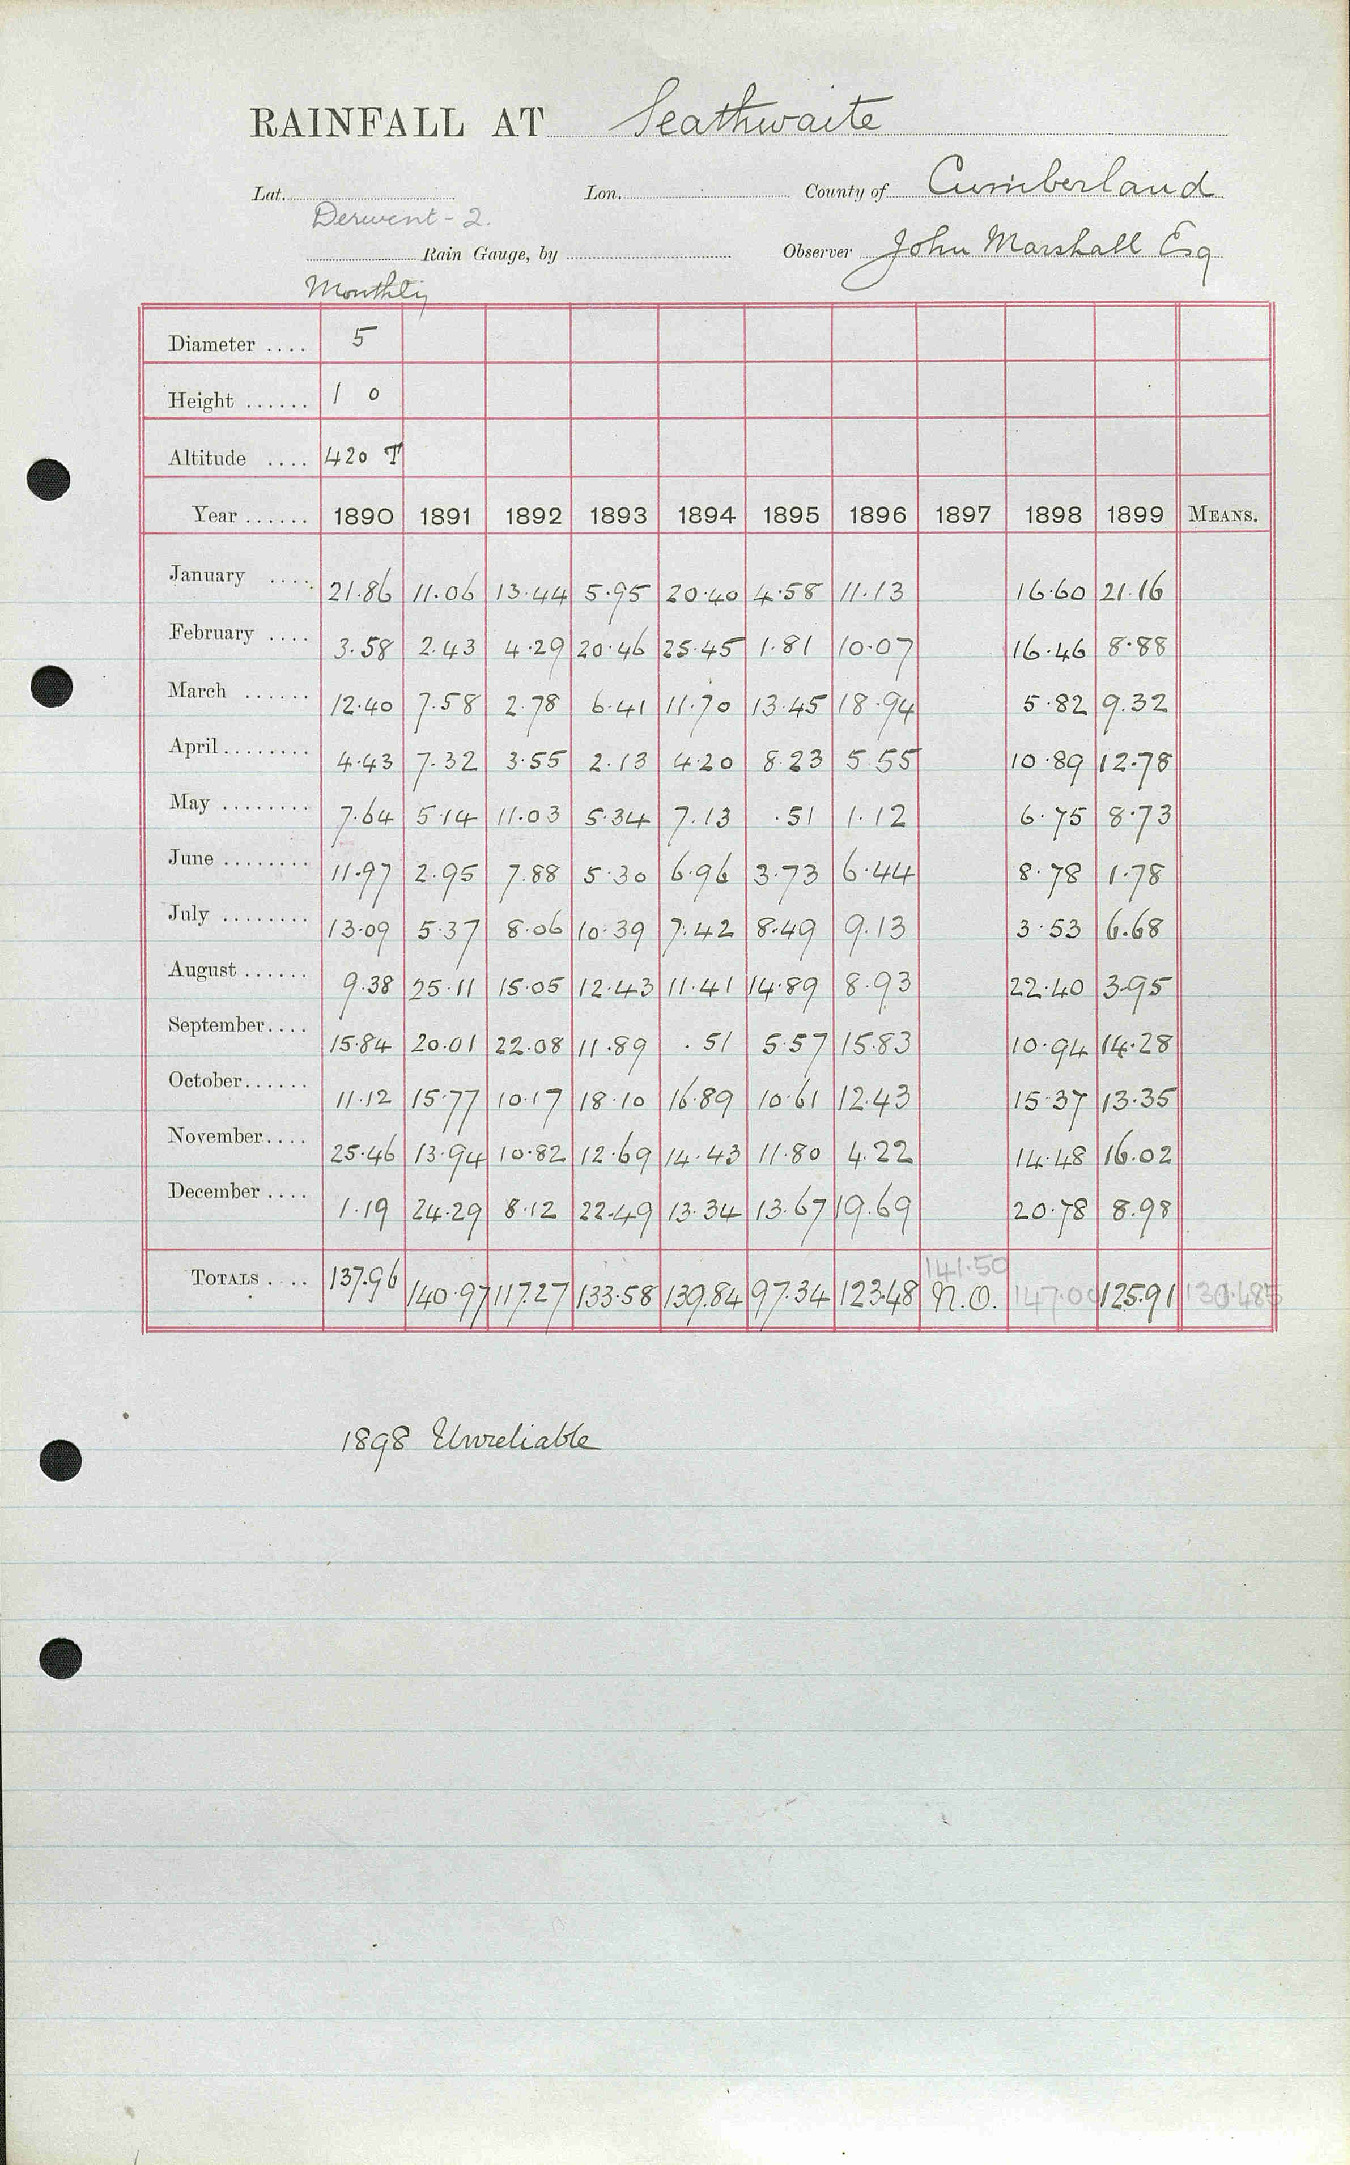 RAINFALL AT Seathwaite
Lat. Lon. County of Cumberland
Derwent - 2.
Rain Gauge, by Observer John Marshall Esq
Monthly
Diameter .... 5
Height ...... 1 0
Altitude .... 420 T
Year ...... 1890 1891 1892 1893 1894 1895 1896 1897 1898 1899 MEANS.
January .... 21.86 11.06 13.44 5.95 20.40 4.58 11.13 16.60 21.16
February .... 3.58 2.43 4.29 20.46 25.45 1.81 10.07 16.46 8.88
March ...... 12.40 7.58 2.78 6.41 11.70 13.45 18.94 5.82 9.32
April ........ 4.43 7.32 3.55 2.13 4.20 8.23 5.55 10.89 12.78
May ........ 7.64 5.14 11.03 5.34 7.13 .51 1.12 6.75 8.73
June ........ 11.97 2.95 7.88 5.30 6.96 3.73 6.44 8.78 1.78
July ........ 13.09 5.37 8.06 10.39 7.42 8.49 9.13 3.53 6.68
August ...... 9.38 25.11 15.05 12.43 11.41 14.89 8.93 22.40 3.95
September.... 15.84 20.01 22.08 11.89 .51 5.57 15.83 10.94 14.28
October...... 11.12 15.77 10.17 18.10 16.89 10.61 12.43 15.37 13.35
November.... 25.46 13.94 10.82 12.69 14.43 11.80 4.22 14.48 16.02
December .... 1.19 24.29 8.12 22.49 13.34 13.67 19.69 20.78 8.98
141.50
TOTALS .... 137.96 140.97 117.27 133.58 139.84 97.34 123.48 N.O. 147.00 125.91 130.485
1898 Unreliable